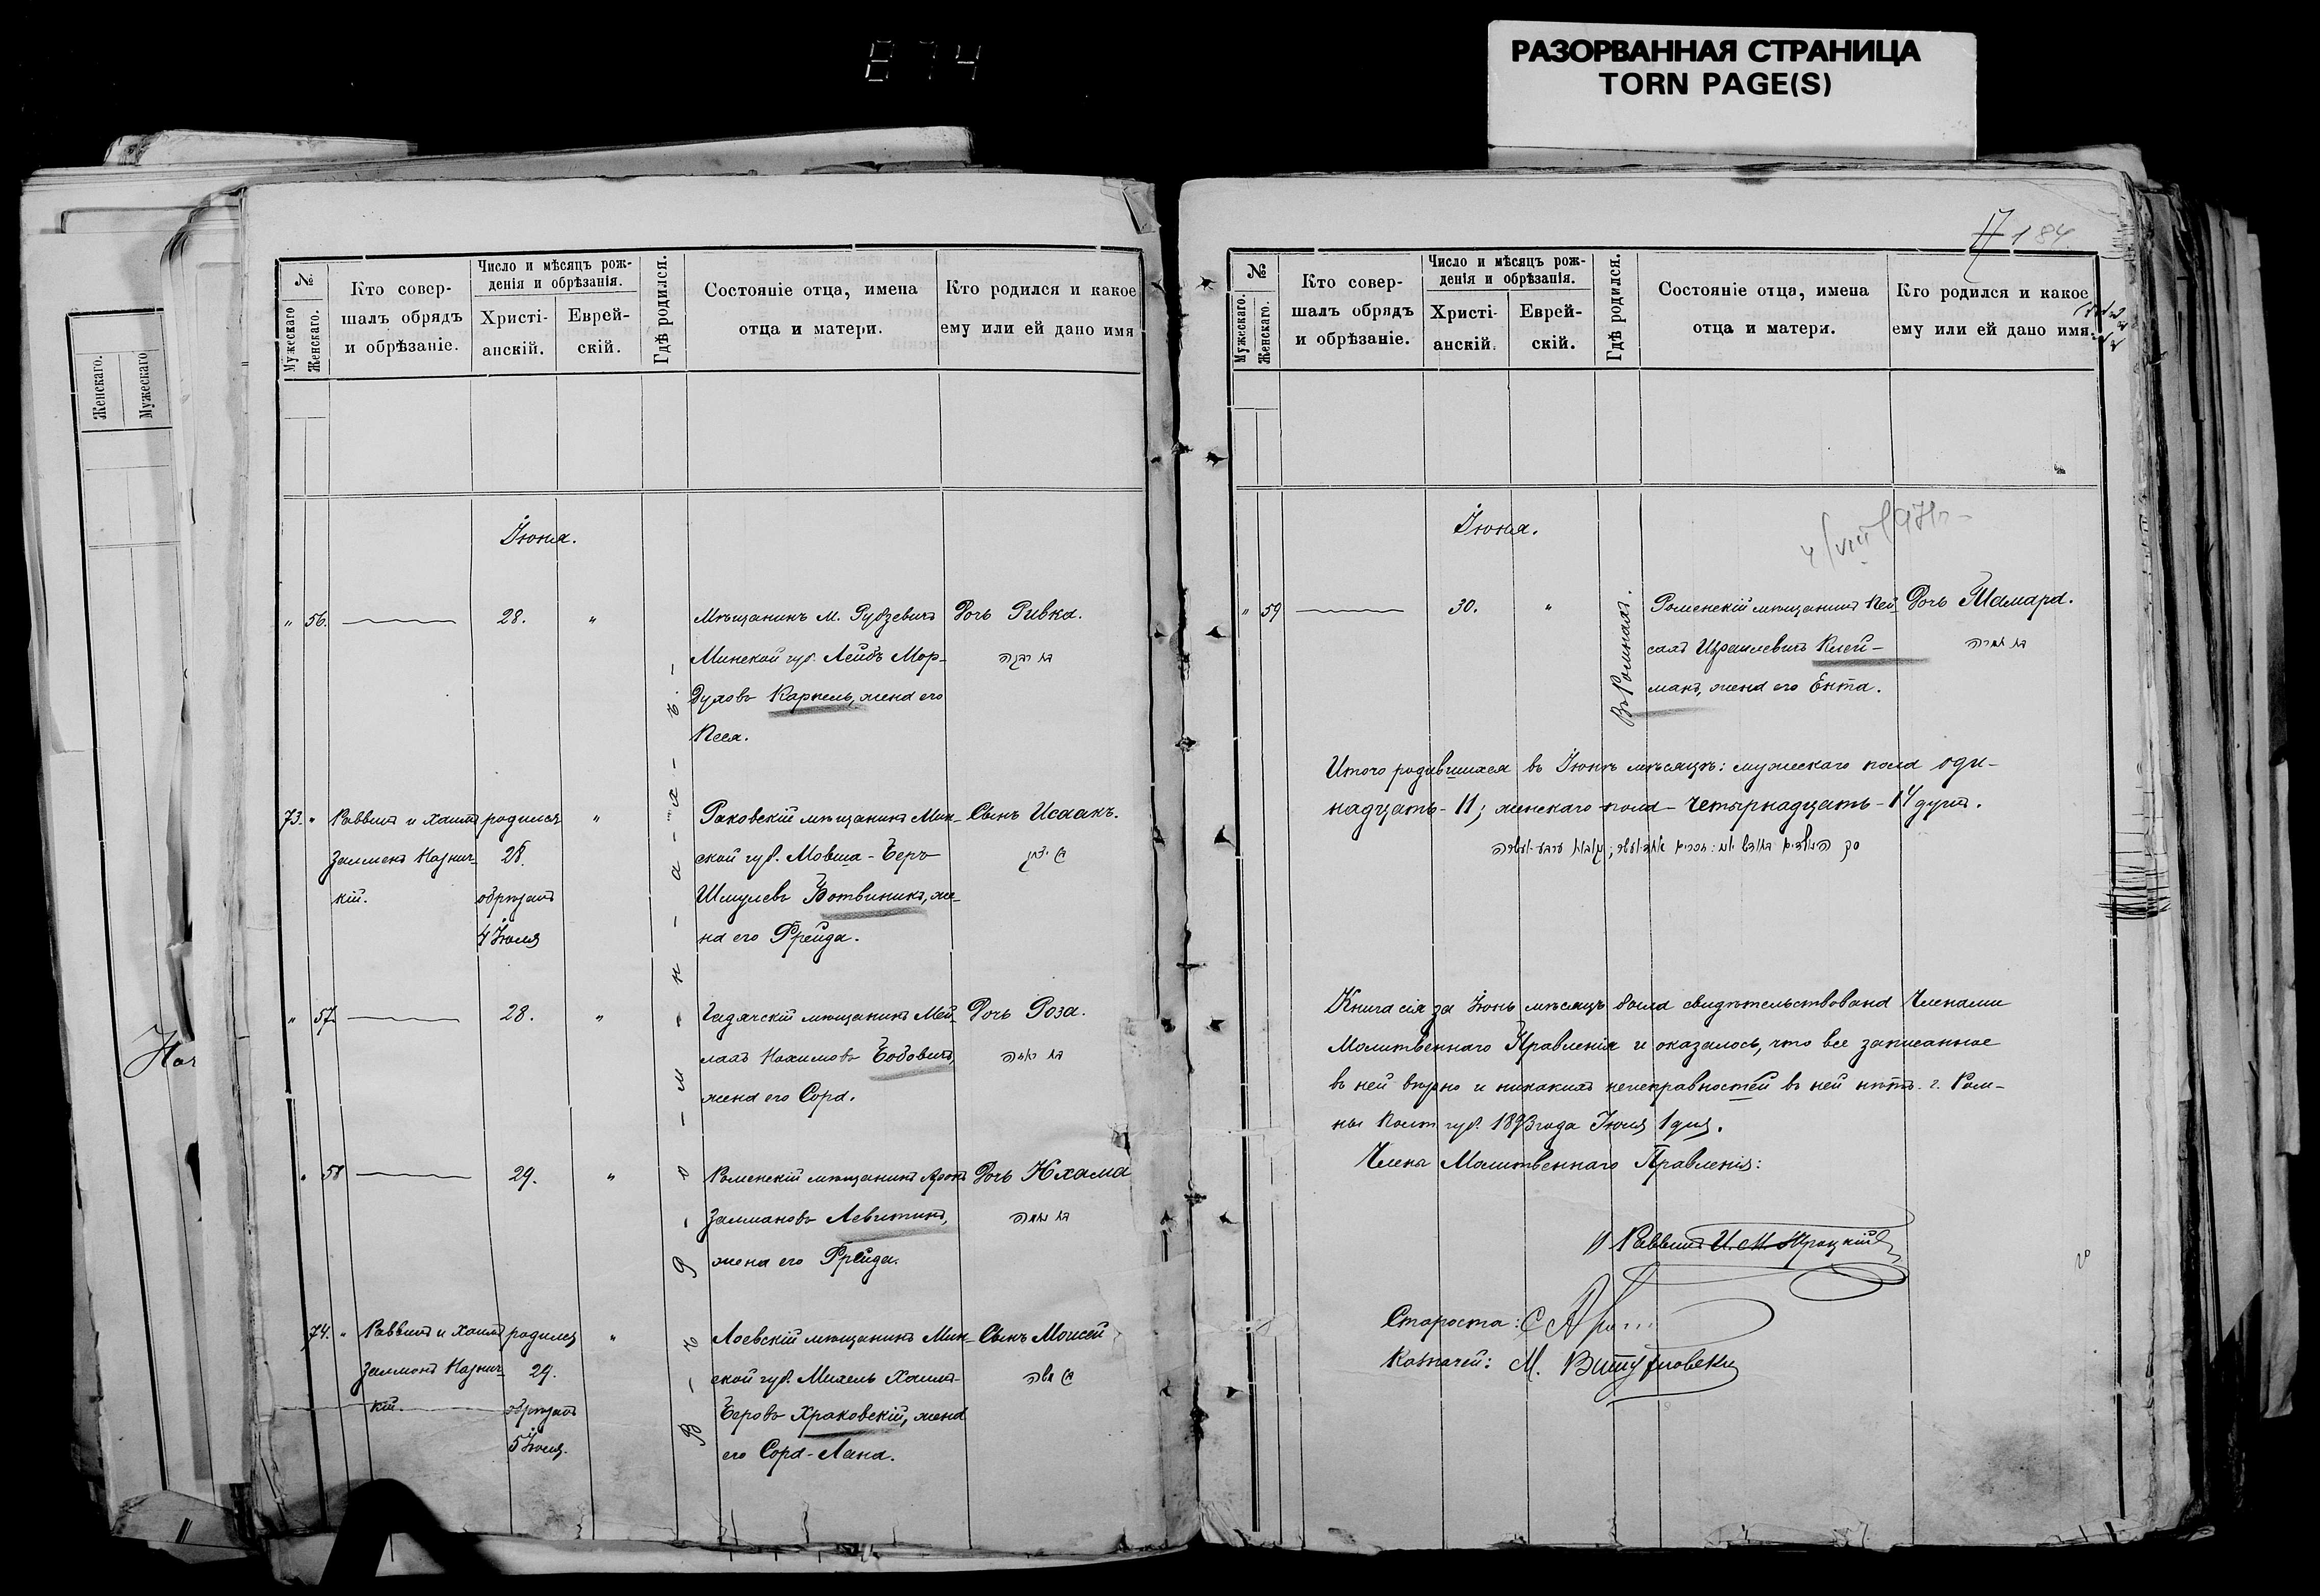 874
РАЗОРВАННАЯ СТРАНИЦА
TORN PAGE(S)
Женскаго.
Мужескаго
№
Мужескаго
Женскаго.
Кто совер-
шалъ обрядъ
и обрѣзаніе.
Число и мѣсяцъ рож-
денія и обрѣзанія.
Христі-
анскій.
Еврей-
скій.
Гдѣ родился.
Состояніе отца, имена
отца и матери.
Кто родился и какое
ему или ей дано имя
Іюня.
" 56. 28. "
Мѣщанинъ м. Рубзевичъ
Минской губ. Лейбъ Мор-
духовъ Карпель, жена его
Песя.
Дочь Ривка.
בת רבקה
73. " Раввинъ и хаимъ
Залменъ Казнич-
кій.
родился
28.
обрѣзанъ
4 Іюля
"
Раковскій мѣщанинъ Мин-
ской губ. Мовша-Беръ
Шмулевъ Ботвиникъ, же-
на его Фрейда.
Сынъ Исаакъ.
בן יצחק
" 57. 28. "
Гадячскій мѣщанинъ Мей-
лахъ Нахимовъ Бобовичъ,
жена его Сора.
Дочь Роза.
בת ראזה
" 58 29. "
Роменскій мѣщанинъ Аронъ
Залмановъ Левитинъ,
жена его Фрейда.
Дочь Нхама
בת נחמה
74. " Раввинъ и хаимъ
Залмонъ Казнич-
кій.
родился
29.
обрѣзанъ
5 Іюля.
"
Лоевскій мѣщанинъ Мин-
ской губ. Михель Хаимъ-
Беровъ Храковскій, жена
его Сора-Лана.
Сынъ Моисей
בן משה
Въ Ромнахъ.
184
№
Мужескаго.
Женскаго.
Кто совер-
шалъ обрядъ
и обрѣзаніе.
Число и мѣсяцъ рож-
денія и обрѣзанія.
Христі-
анскій.
Еврей-
скій.
Гдѣ родился.
Состояніе отца, имена
отца и матери.
Кто родился и какое
ему или ей дано имя.
Іюня.
" 59 30. "
Въ Ромнахъ.
Роменскій мѣщанинъ Пей-
сахъ Израилевичъ Клей-
манъ, жена его Ента.
Дочь Тамара.
בת תמרה
Итого родившихся въ Іюнѣ мѣсяцѣ: мужескаго пола оди-
надцать - 11; женскаго пола - четырнадцать - 14 душъ.
Книга сія за Іюнь мѣсяцъ была свидѣтельствована Членами
Молитвеннаго Правленія и оказалось, что все записанное
въ ней вѣрно и никакихъ неисправностей въ ней нѣтъ. г. Ром-
ны Полт. губ. 1893 года Іюля 1 дня.
Члены Молитвеннаго Правленія:
Раввинъ И. М. Троцкій
Староста:
Казначей: М.